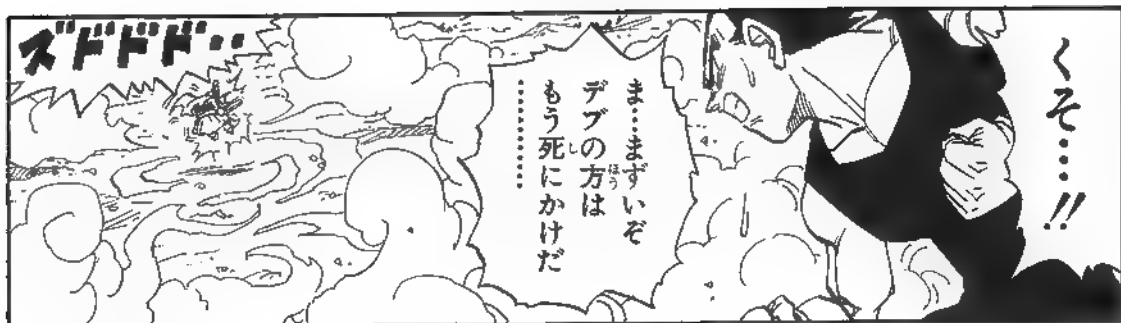 くそ…!!
ま…まずいぞ
デブの方は
もう死にかけだ
…………
ズドドド‥